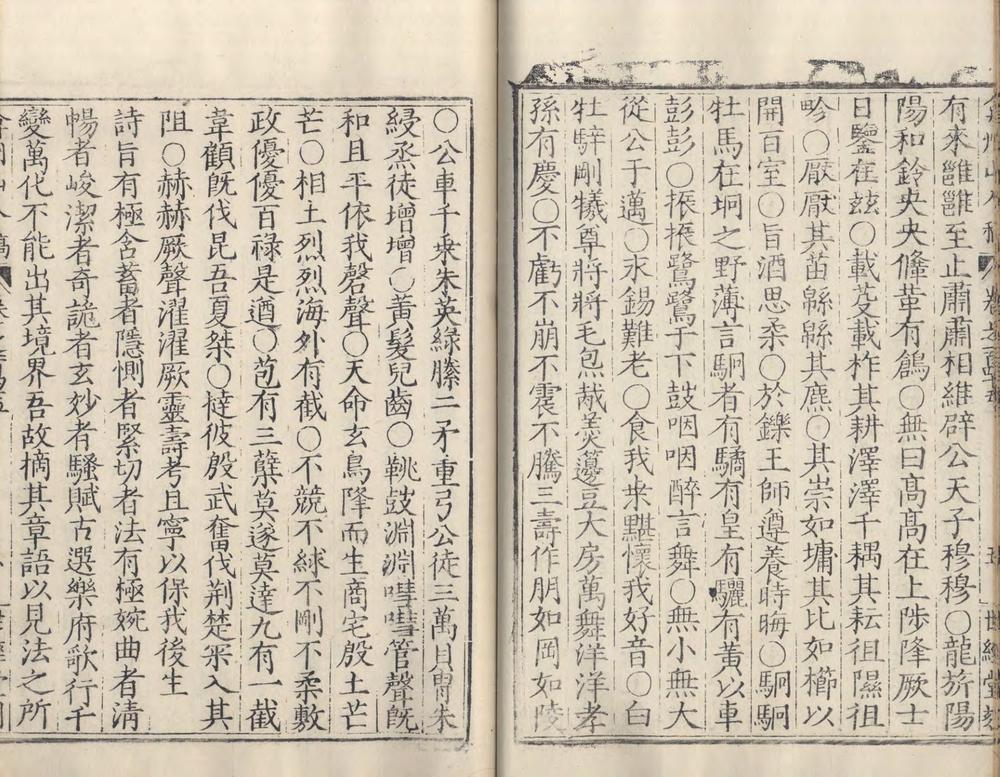 弇州山人稿
世經堂刻
有來雝雝至止肅肅相維辟公天子穆穆〇龍旂陽
陽和鈴央央鞗革有鶬〇無曰髙髙在上陟降厥士
日鑒在玆〇載芟載柞其耕澤澤千耦其耘徂隰徂
畛〇厭厭其苗緜緜其麃〇其崇如墉其比如櫛以
開百室〇旨酒思柔〇於鑠王師遵養時晦〇駉駉
牡馬在坰之野薄言駉者有驈有皇有驪有黃以車
彭彭〇振振鷺鷺于下鼓咽咽醉言舞〇無小無大
從公于邁〇永錫難老〇食我桒黮懷我好音〇白
牡騂剛犧尊將將毛炰胾羹籩豆大房萬舞洋洋孝
孫有慶〇不虧不崩不震不騰三壽作朋如岡如陵
〇公車千乗朱英綠縢二矛重弓公徒三萬貝冑朱
綅烝徒增增〇黃髮兒齒〇鞉鼓淵淵嘒嘒管聲旣
和且平依我磬聲〇天命玄鳥降而生商宅殷土芒
芒〇相土烈烈海外有截〇不競不絿不剛不柔敷
政優優百禄是遒〇苞有三蘖莫遂莫達九有一截
韋顧旣伐昆吾夏桀〇撻彼殷武奮伐荆楚罙入其
阻〇赫赫厥聲濯濯厥靈壽考且寧以保我後生
詩旨有極含蓄者隱惻者緊切者法有極婉曲者淸
暢者峻潔者奇詭者玄妙者騷賦古選樂府歌行千
變萬代不能出其境界吾故摘其章語以見法之所